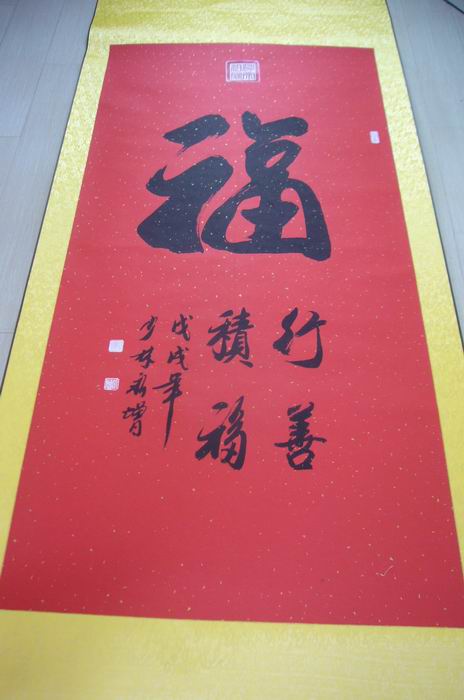 福
行善
積福
戊戌年
少林永增